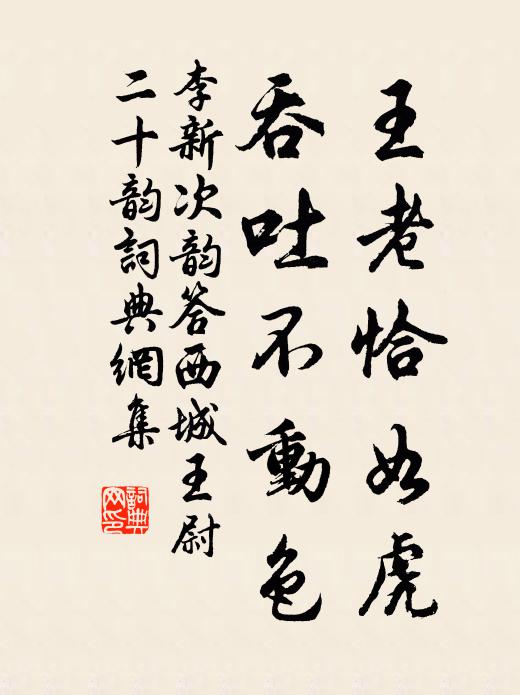 王老恰如虎
吞吐不動色
李新次韵答西城王尉
二十韵詞典網集
詞典網印